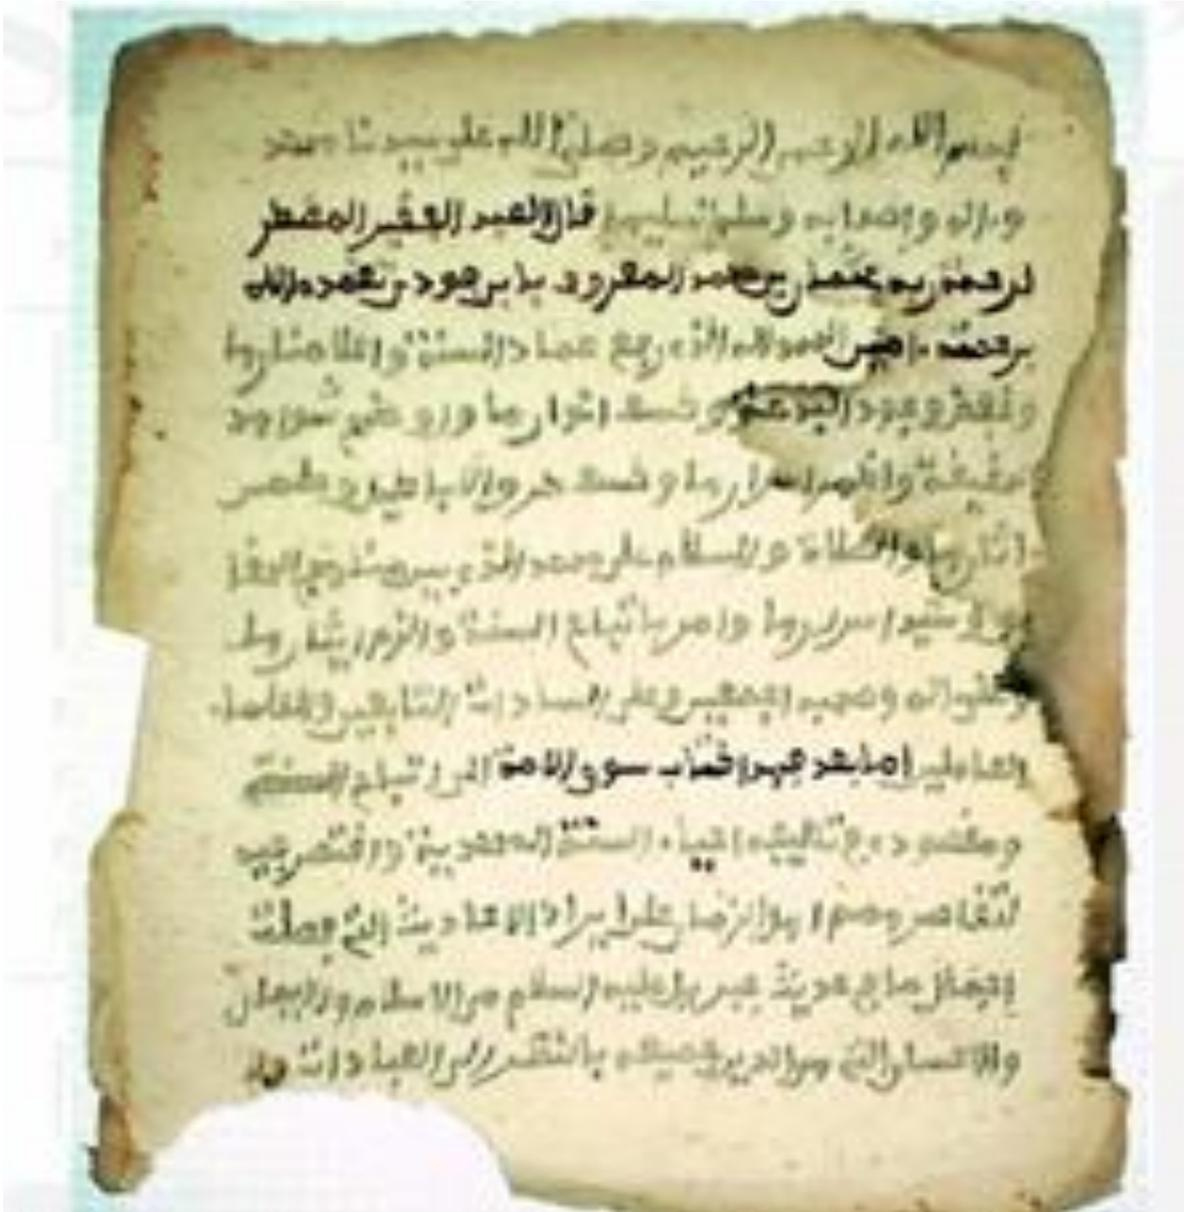 بسم الله الرحمن الرحيم وصلى الله على سيدنا محمد
وءاله وإصحابه وسلم تسليما قال العبد الفقير المضطر
لرحمة ربه عثمان بن محمد المعروف بابن فودي تغمده الله
برحمته ءامين الحمد لله الذي رفع عماد السنة واعلا منارها
ونقض وجود البدعة وكسف انوارها ورو
حقيقة واظهر اسرارها و
اثارها والصلاة والسلام على محمد الذي بين مناهج
اسرارها وامر باتباع السنة والزم
وعلى ءاله وصحبه اجمعين وعلى السادات التابعين والعلماء
العاملين اما بعد فهذا كتاب سوق الامة الى اتباع السنة
ومقصودي في تاليفه احياء السنة المحمدية واقتصر فيه
لتقاصر على ايراد الاحاديث التي فصلت
اجمال ما في حديث جبريل عليه السلام من الاسلام والايمان
والاحسان الذي هو الدين جميعه بالنظر الى العبادات